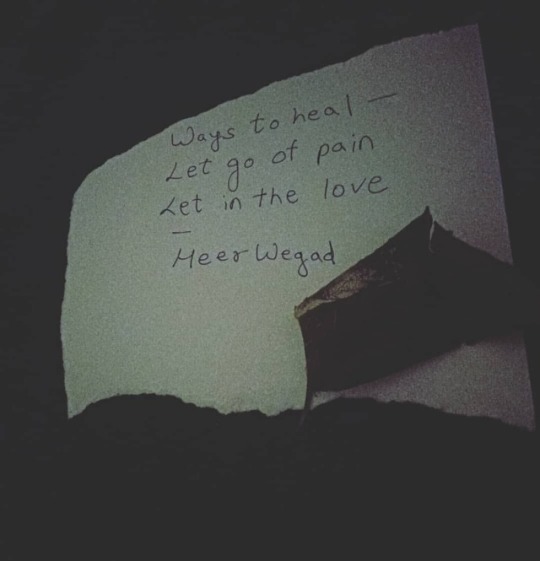 Ways to heal —
Let go of pain
Let in the love
—
Meer Wegad